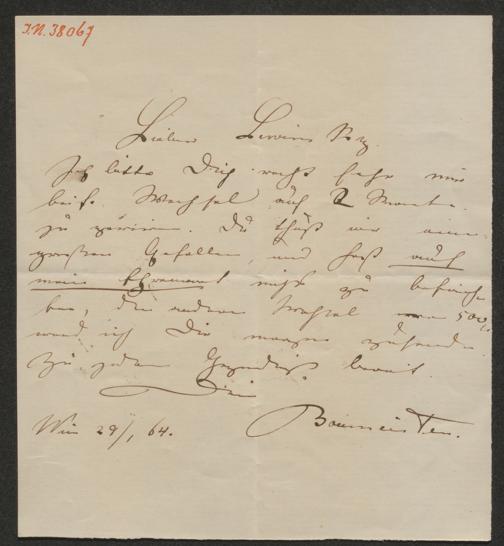 I.N. 38067
Lieber
Ich bitte Dich recht sehr mir
beil. Wechsel auf 2 Monate
zu Du thust mir einen
großen Gefallen, und hast auch
mein nicht zu
ben, den andern Wechsel von 500
werd ich Dir morgen zusenden
Zu jedem bereit.
Dein
Baumeister.
Wien 29/1 64.